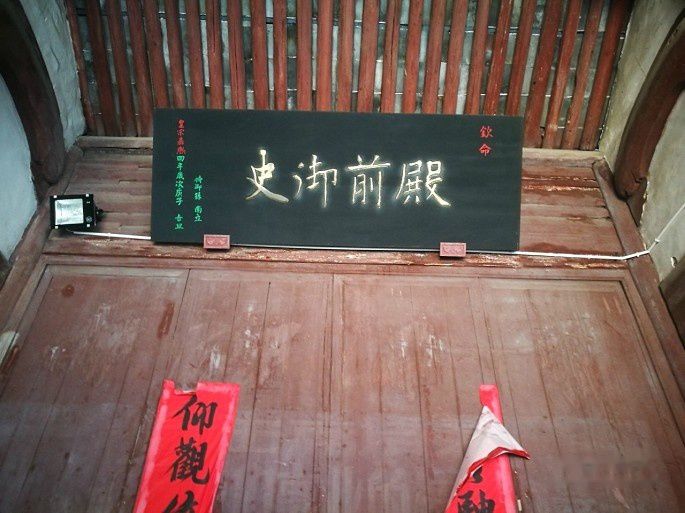 欽命
殿前御史
皇宋嘉熙四年歲次庚子 吉旦
仰觀